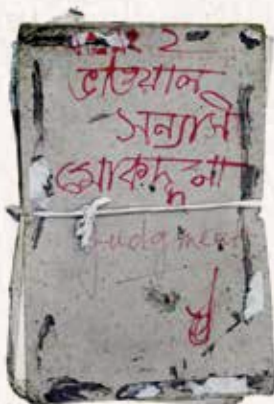 ২
ভাওয়াল
সন্ন্যাসী
মোকদ্দমা
Judgment